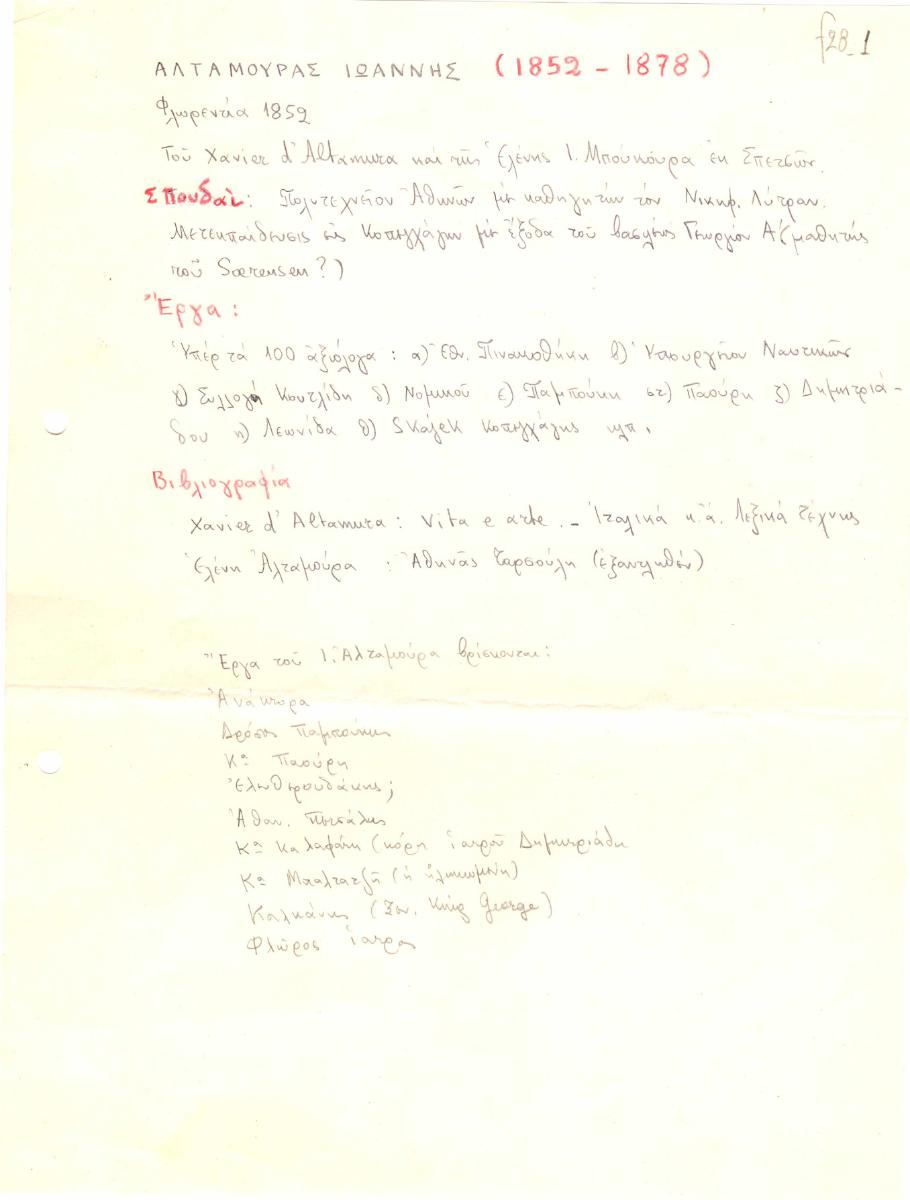 f28_1
ΑΛΤΑΜΟΥΡΑΣ ΙΩΑΝΝΗΣ (1852 - 1878)
Φλωρεντία 1852
Τοῦ Xavier d'Altamura καί τῆς Ἑλένης Ι. Μπούκουρα ἐκ Σπετσῶν.
Σπουδαὶ: Πολυτεχνεῖον Ἀθηνῶν μέ καθηγητήν τόν Νικηφ. Λύτραν.
Μετεκπαίδευσις εἰς Κοπεγχάγην μέ ἔξοδα τοῦ βασιλέως Γεωργίου Α' (μαθητής
τοῦ Sœrensen?)
Ἔργα:
Ὑπέρ τά 100 ἀξιόλογα: α) Ἐθν. Πινακοθήκη β) Ὑπουργεῖον Ναυτικῶν
γ) Συλλογή Κουτλίδη δ) Νομικοῦ ε) Παμπούκη στ) Παούρη ζ) Δημητριά-
δου η) Λεωνίδα θ) Κοπεγχάγης κλπ.
Βιβλιογραφία
Xavier d'Altamura: Vita e arte. - Ἰταλικά κ.ἄ. Λεξικά τέχνης
Ἑλένη Ἀλταμούρα: Ἀθηνᾶς Ταρσούλη (ἐξαντληθέν)
Ἔργα τοῦ Ι. Ἀλταμούρα βρίσκονται:
Ἀνάκτορα
Δρόσος Παμπούκης
Κα Παούρη
Ἐλευθερουδάκης;
Ἀθαν.
Κα Καλαφάτη (κόρη ἰατροῦ Δημητριάδη
Κα Μπαλτατζῆ (ἡ ἡλικιωμένη)
Καλκάνης (Ξεν. King George)
Φλῶρος ἰατρός